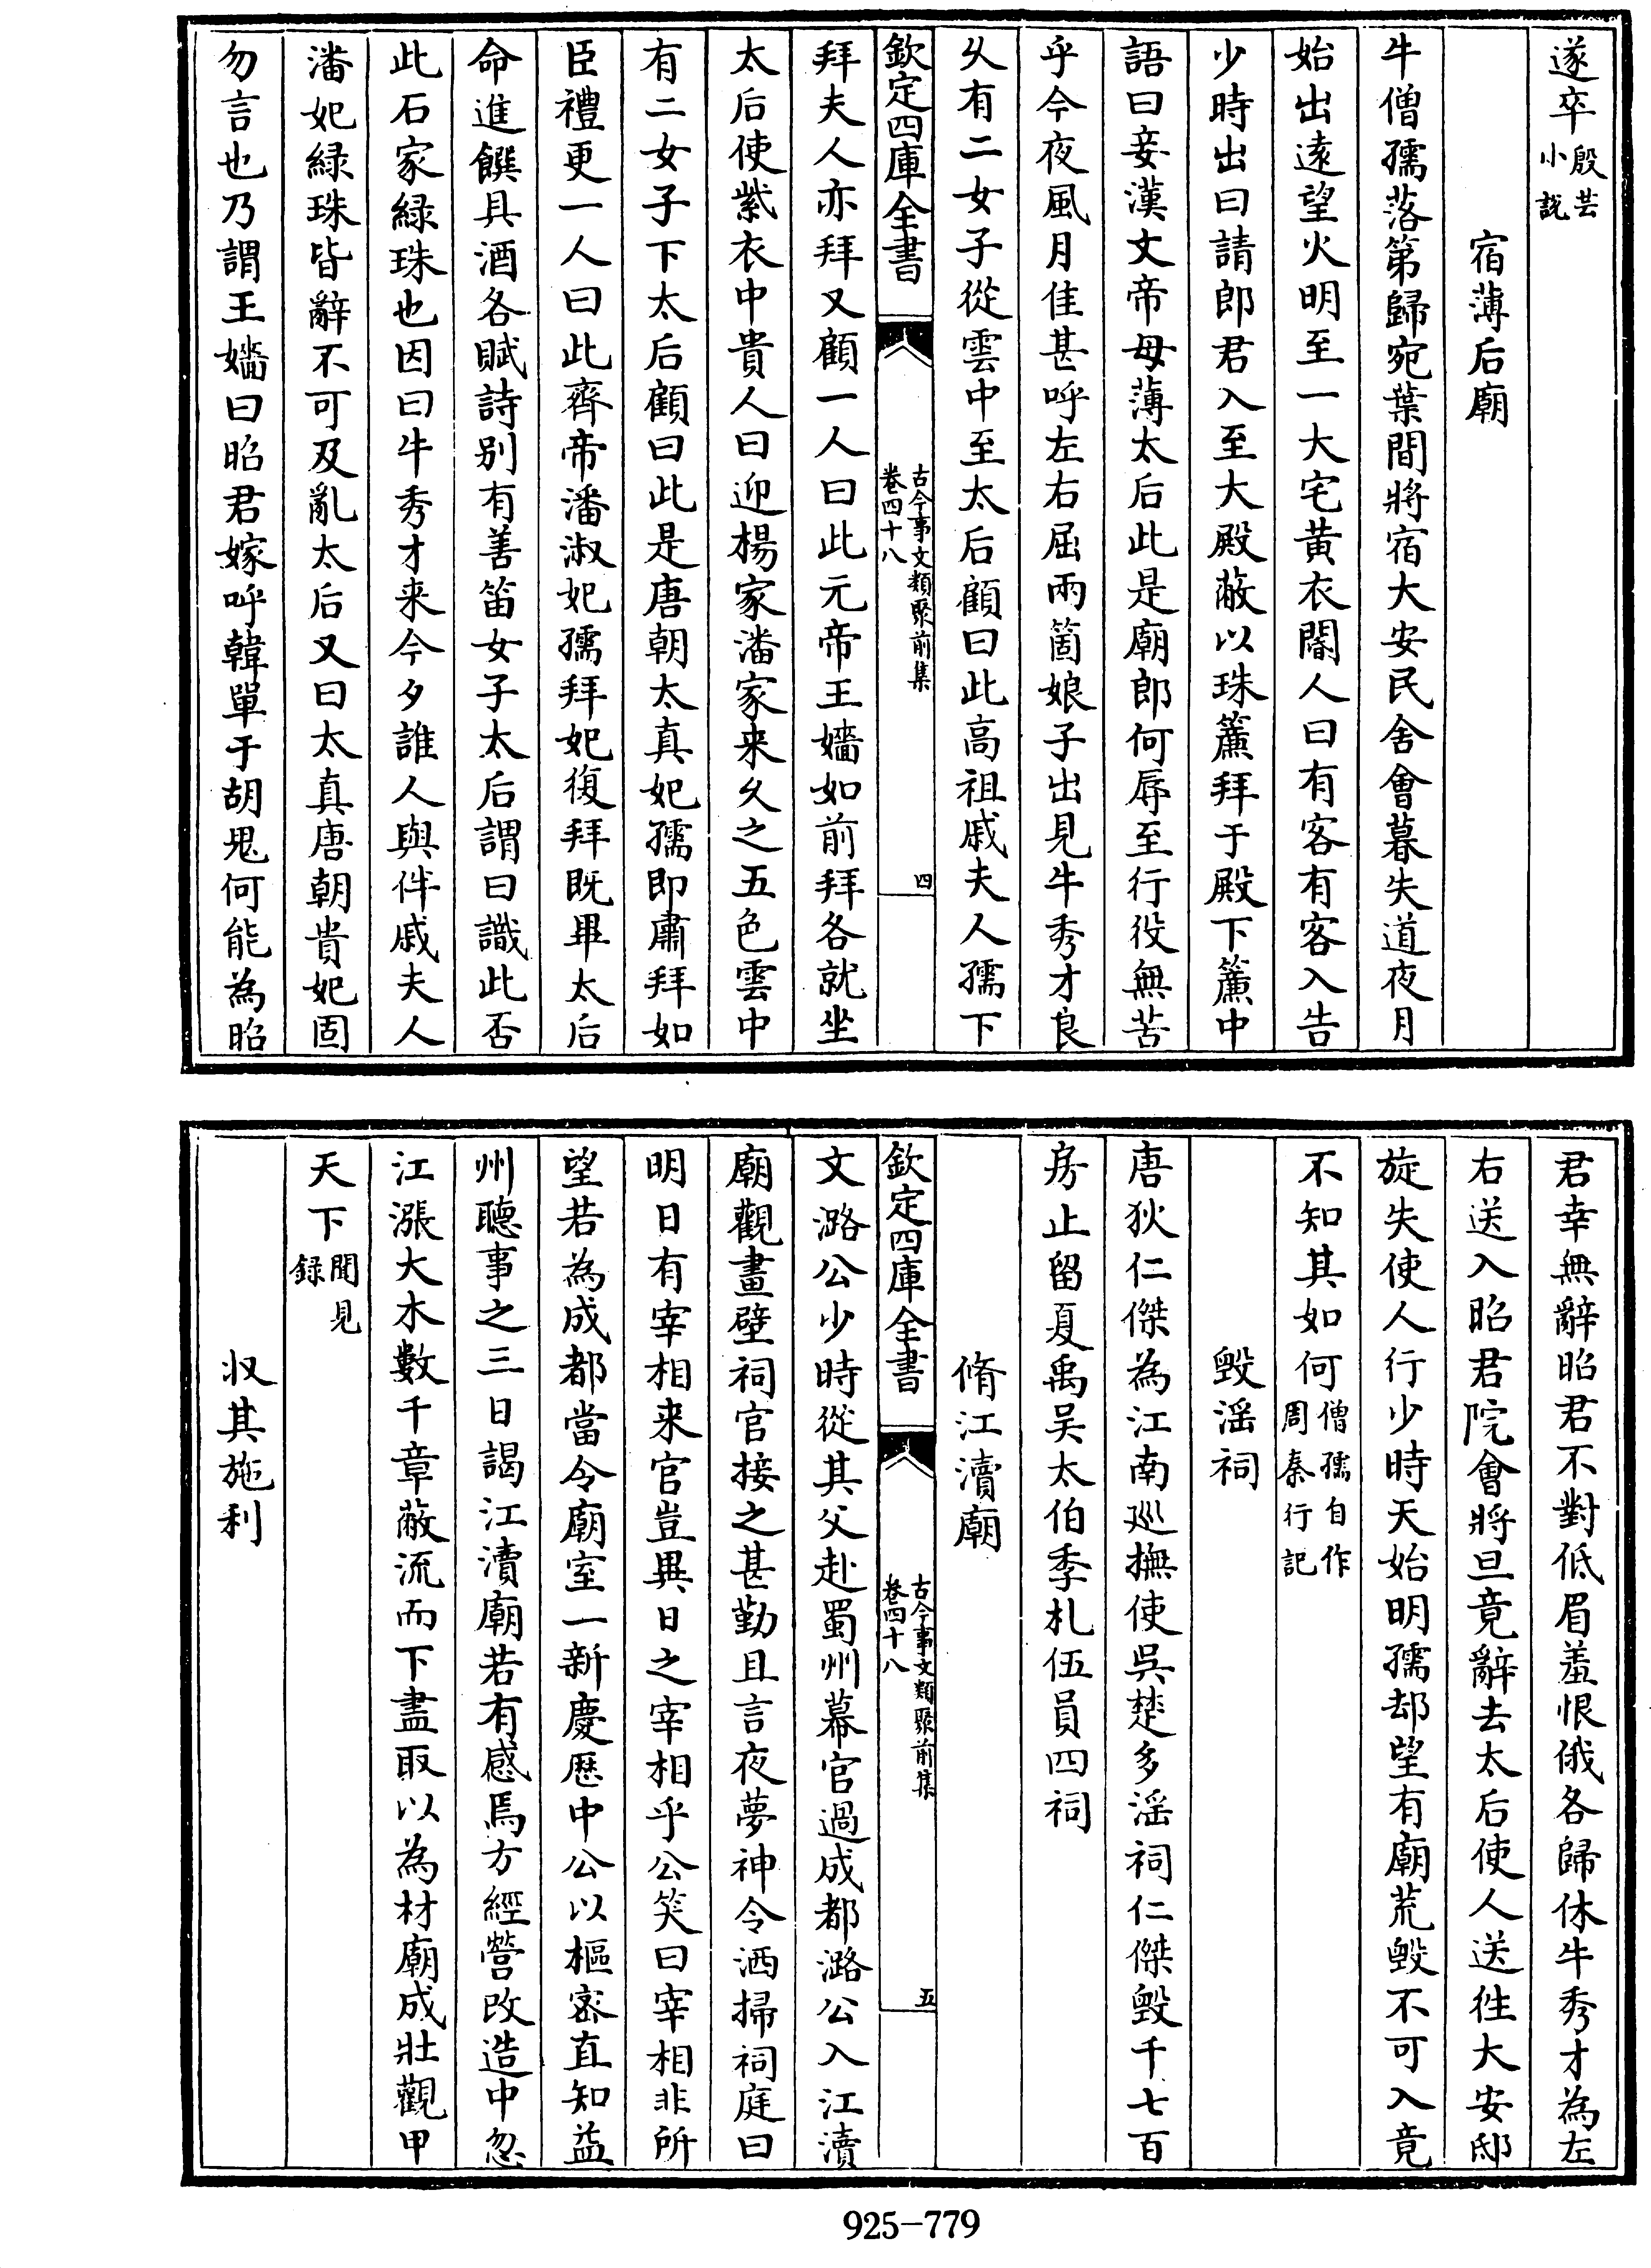 遂卒殷芸小説
宿薄后廟
牛僧孺落第歸宛葉間將宿大安民舍會暮失道夜月
始出遠望火明至一大宅黄衣閽人曰有客有客入告
少時出曰請郎君入至大殿蔽以珠簾拜于殿下簾中
語曰妾漢文帝母薄太后此是廟郎何辱至行役無苦
乎今夜風月佳甚呼左右屈兩箇娘子出見牛秀才良
乆有二女子從雲中至太后顧曰此高祖戚夫人孺下
欽定四庫全書
古今事文類聚前集
卷四十八
四
拜夫人亦拜又顧一人曰此元帝王嬙如前拜各就坐
太后使紫衣中貴人曰迎楊家潘家来乆之五色雲中
有二女子下太后顧曰此是唐朝太真妃孺即肅拜如
臣禮更一人曰此齊帝潘淑妃孺拜妃復拜既畢太后
命進饌具酒各賦詩别有善笛女子太后謂曰識此否
此石家緑珠也因曰牛秀才来今夕誰人與伴戚夫人
潘妃緑珠皆辭不可及亂太后又曰太真唐朝貴妃固
勿言也乃謂王嬙曰昭君嫁呼韓單于胡鬼何能為昭
君幸無辭昭君不對低眉羞恨俄各歸休牛秀才為左
右送入昭君院會將旦竟辭去太后使人送徃大安邸
旋失使人行少時天始明孺却望有廟荒毁不可入竟
不知其如何僧孺自作周秦行記
毁滛祠
唐狄仁傑為江南廵撫使吳楚多滛祠仁傑毁千七百
房止留夏禹吴太伯季札伍員四祠
脩江瀆廟
欽定四庫全書
古今事文類聚前集
卷四十八
五
文潞公少時從其父赴蜀州幕官過成都潞公入江瀆
廟觀畫壁祠官接之甚勤且言夜夢神令洒掃祠庭曰
明日有宰相来官豈異日之宰相乎公笑曰宰相非所
望若為成都當令廟室一新慶歴中公以樞宻直知益
州聽事之三日謁江瀆廟若有感焉方經營改造中忽
江漲大木數千章蔽流而下盡取以為材廟成壯觀甲
天下聞見録
收其施利
925-779